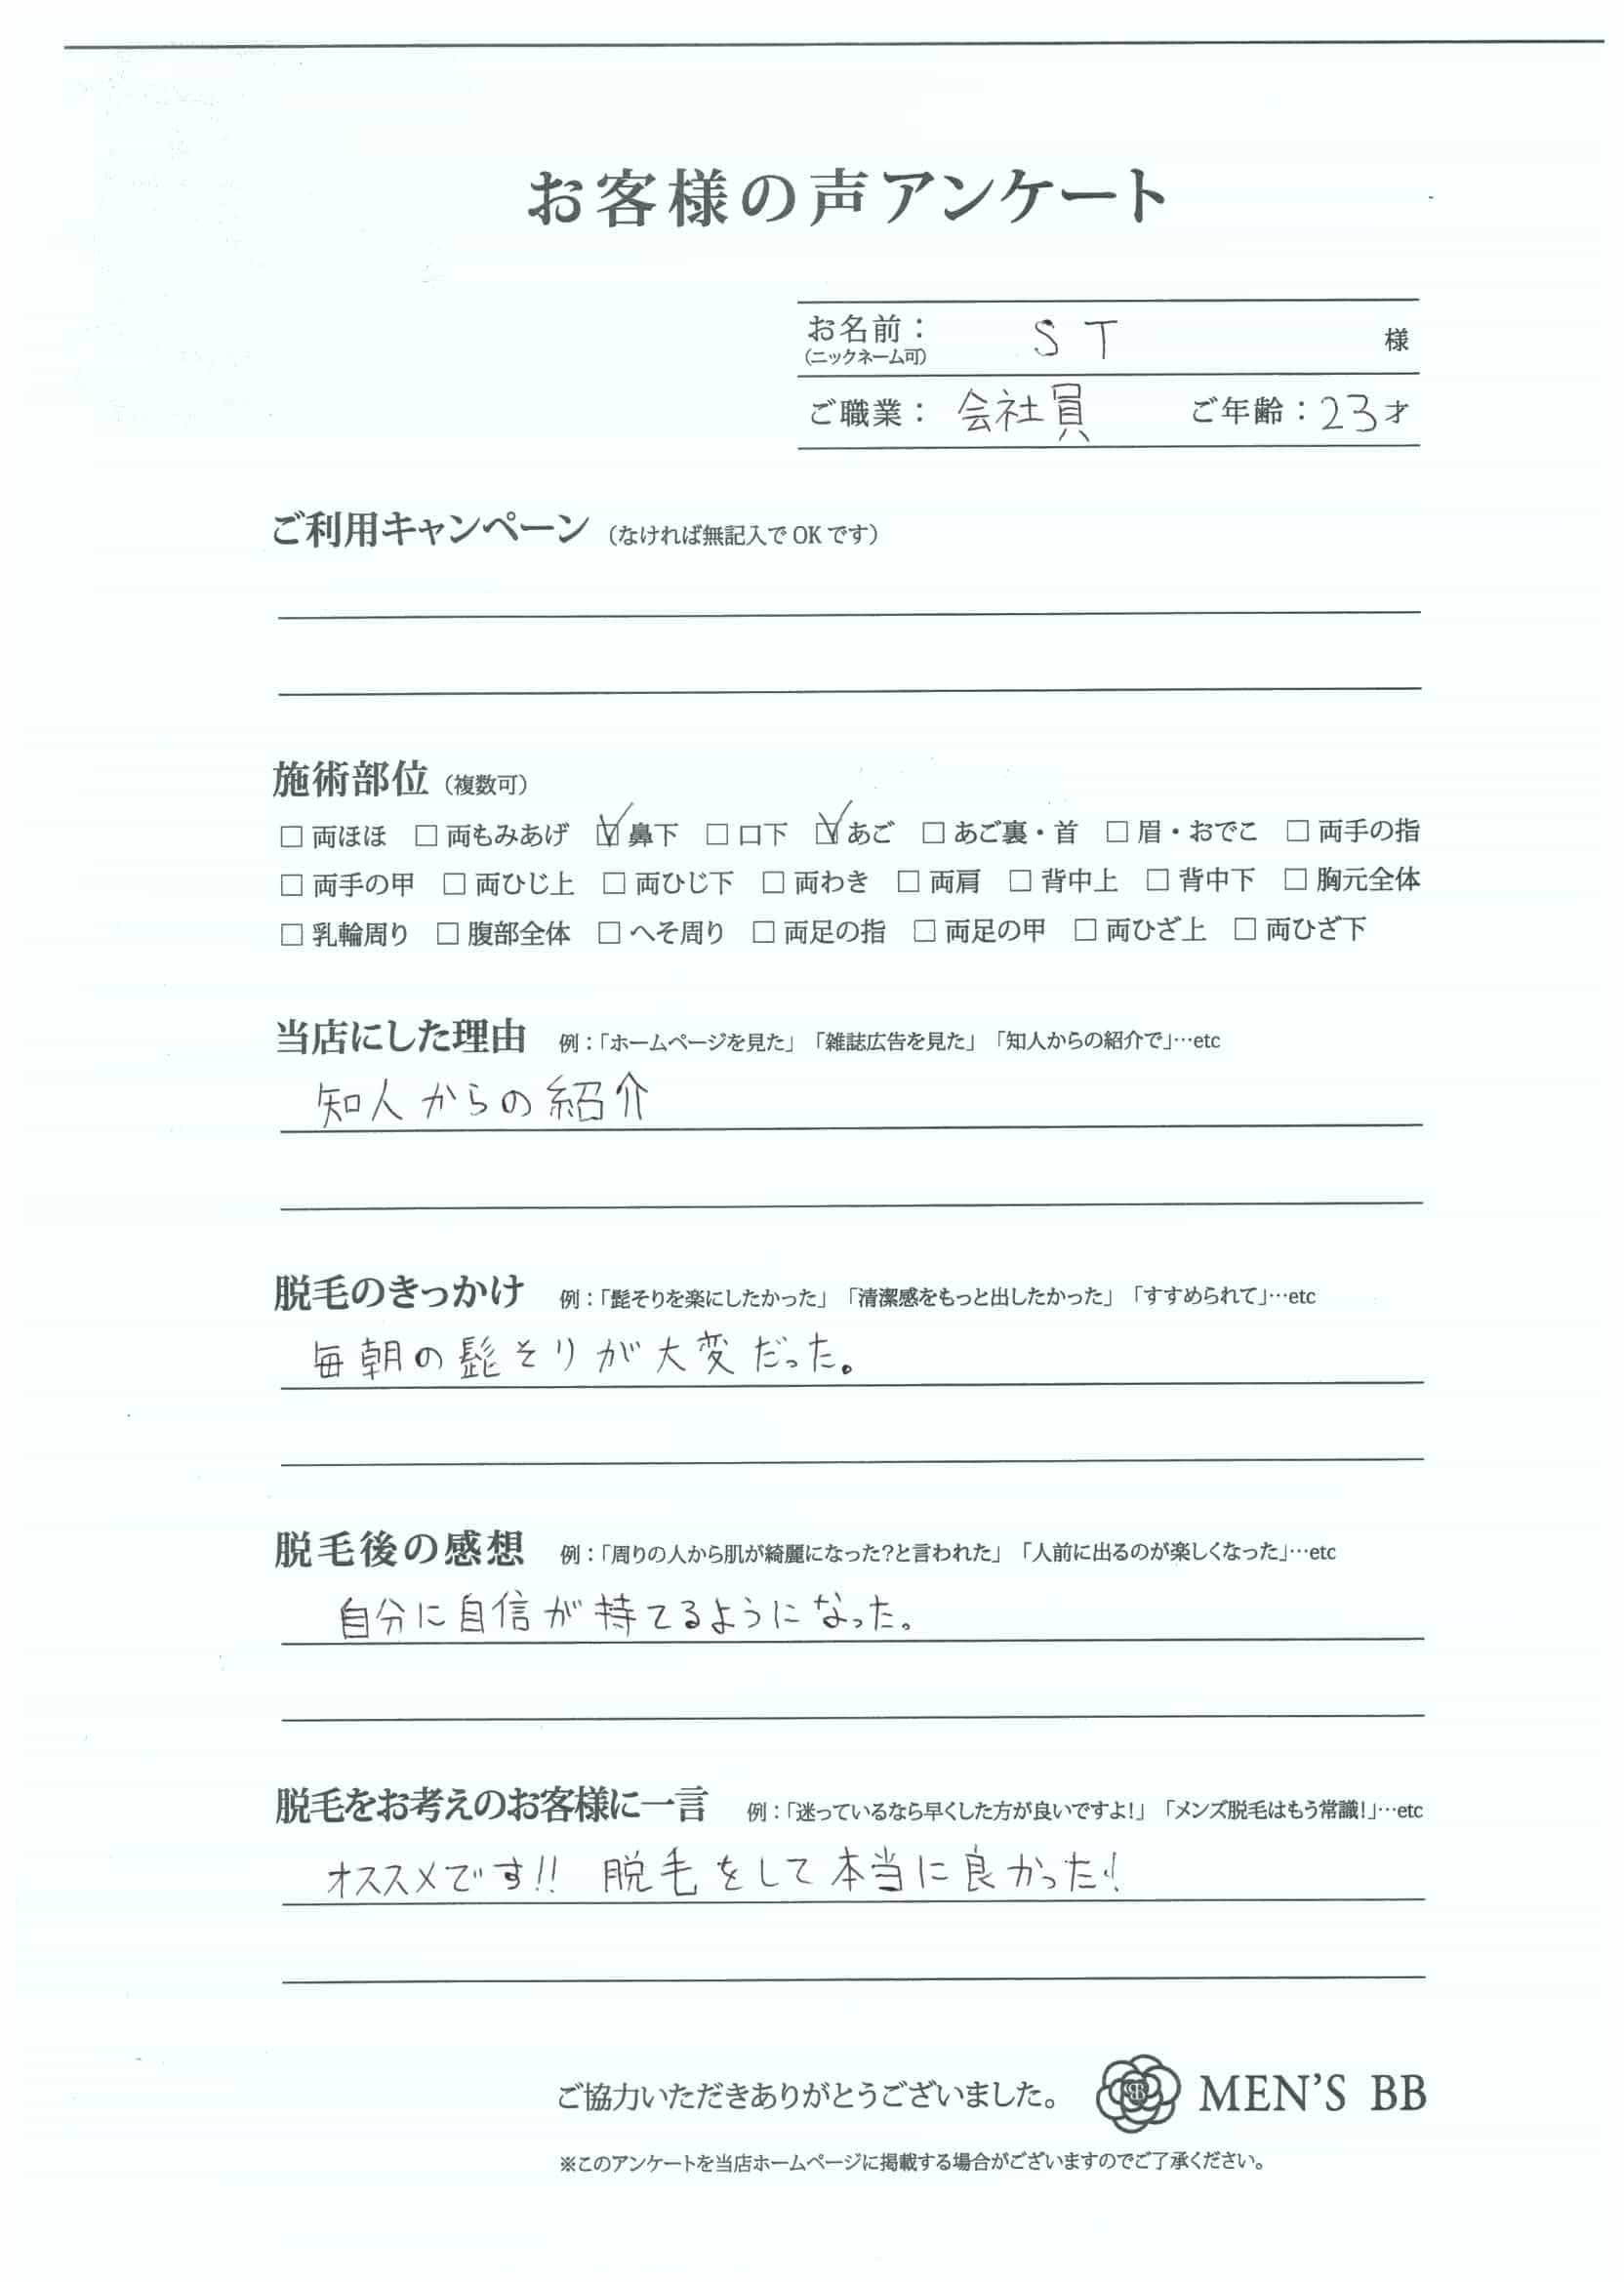 お客様の声アンケート
お名前： S T 様
（ニックネーム可）
ご職業： 会社員 ご年齢：23才
ご利用キャンペーン （なければ無記入で OK です）
施術部位 （複数可）
□ 両ほほ □ 両もみあげ ☑ 鼻下 □ 口下 ☑ あご □ あご裏・首 □ 眉・おでこ □ 両手の指
□ 両手の甲 □ 両ひじ上 □ 両ひじ下 □ 両わき □ 両肩 □ 背中上 □ 背中下 □ 胸元全体
□ 乳輪周り □ 腹部全体 □ へそ周り □ 両足の指 □ 両足の甲 □ 両ひざ上 □ 両ひざ下
当店にした理由 例：「ホームページを見た」「雑誌広告を見た」「知人からの紹介で」…etc
知人からの紹介
脱毛のきっかけ 例：「髭そりを楽にしたかった」「清潔感をもっと出したかった」「すすめられて」…etc
毎朝の髭そりが大変だった。
脱毛後の感想 例：「周りの人から肌が綺麗になった？と言われた」「人前に出るのが楽しくなった」…etc
自分に自信が持てるようになった。
脱毛をお考えのお客様に一言 例：「迷っているなら早くした方が良いですよ！」「メンズ脱毛はもう常識！」…etc
オススメです!! 脱毛をして本当に良かった!
ご協力いただきありがとうございました。 MEN'S BB
※このアンケートを当店ホームページに掲載する場合がございますのでご了承ください。